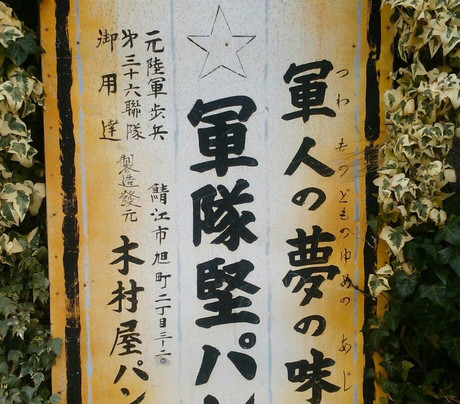 軍人の夢の味
つわものどものゆめの あじ
軍隊堅パン
元陸軍歩兵
第三十六聯隊
御用達
鯖江市旭町二丁目三-二〇
製造発元
木村屋パン